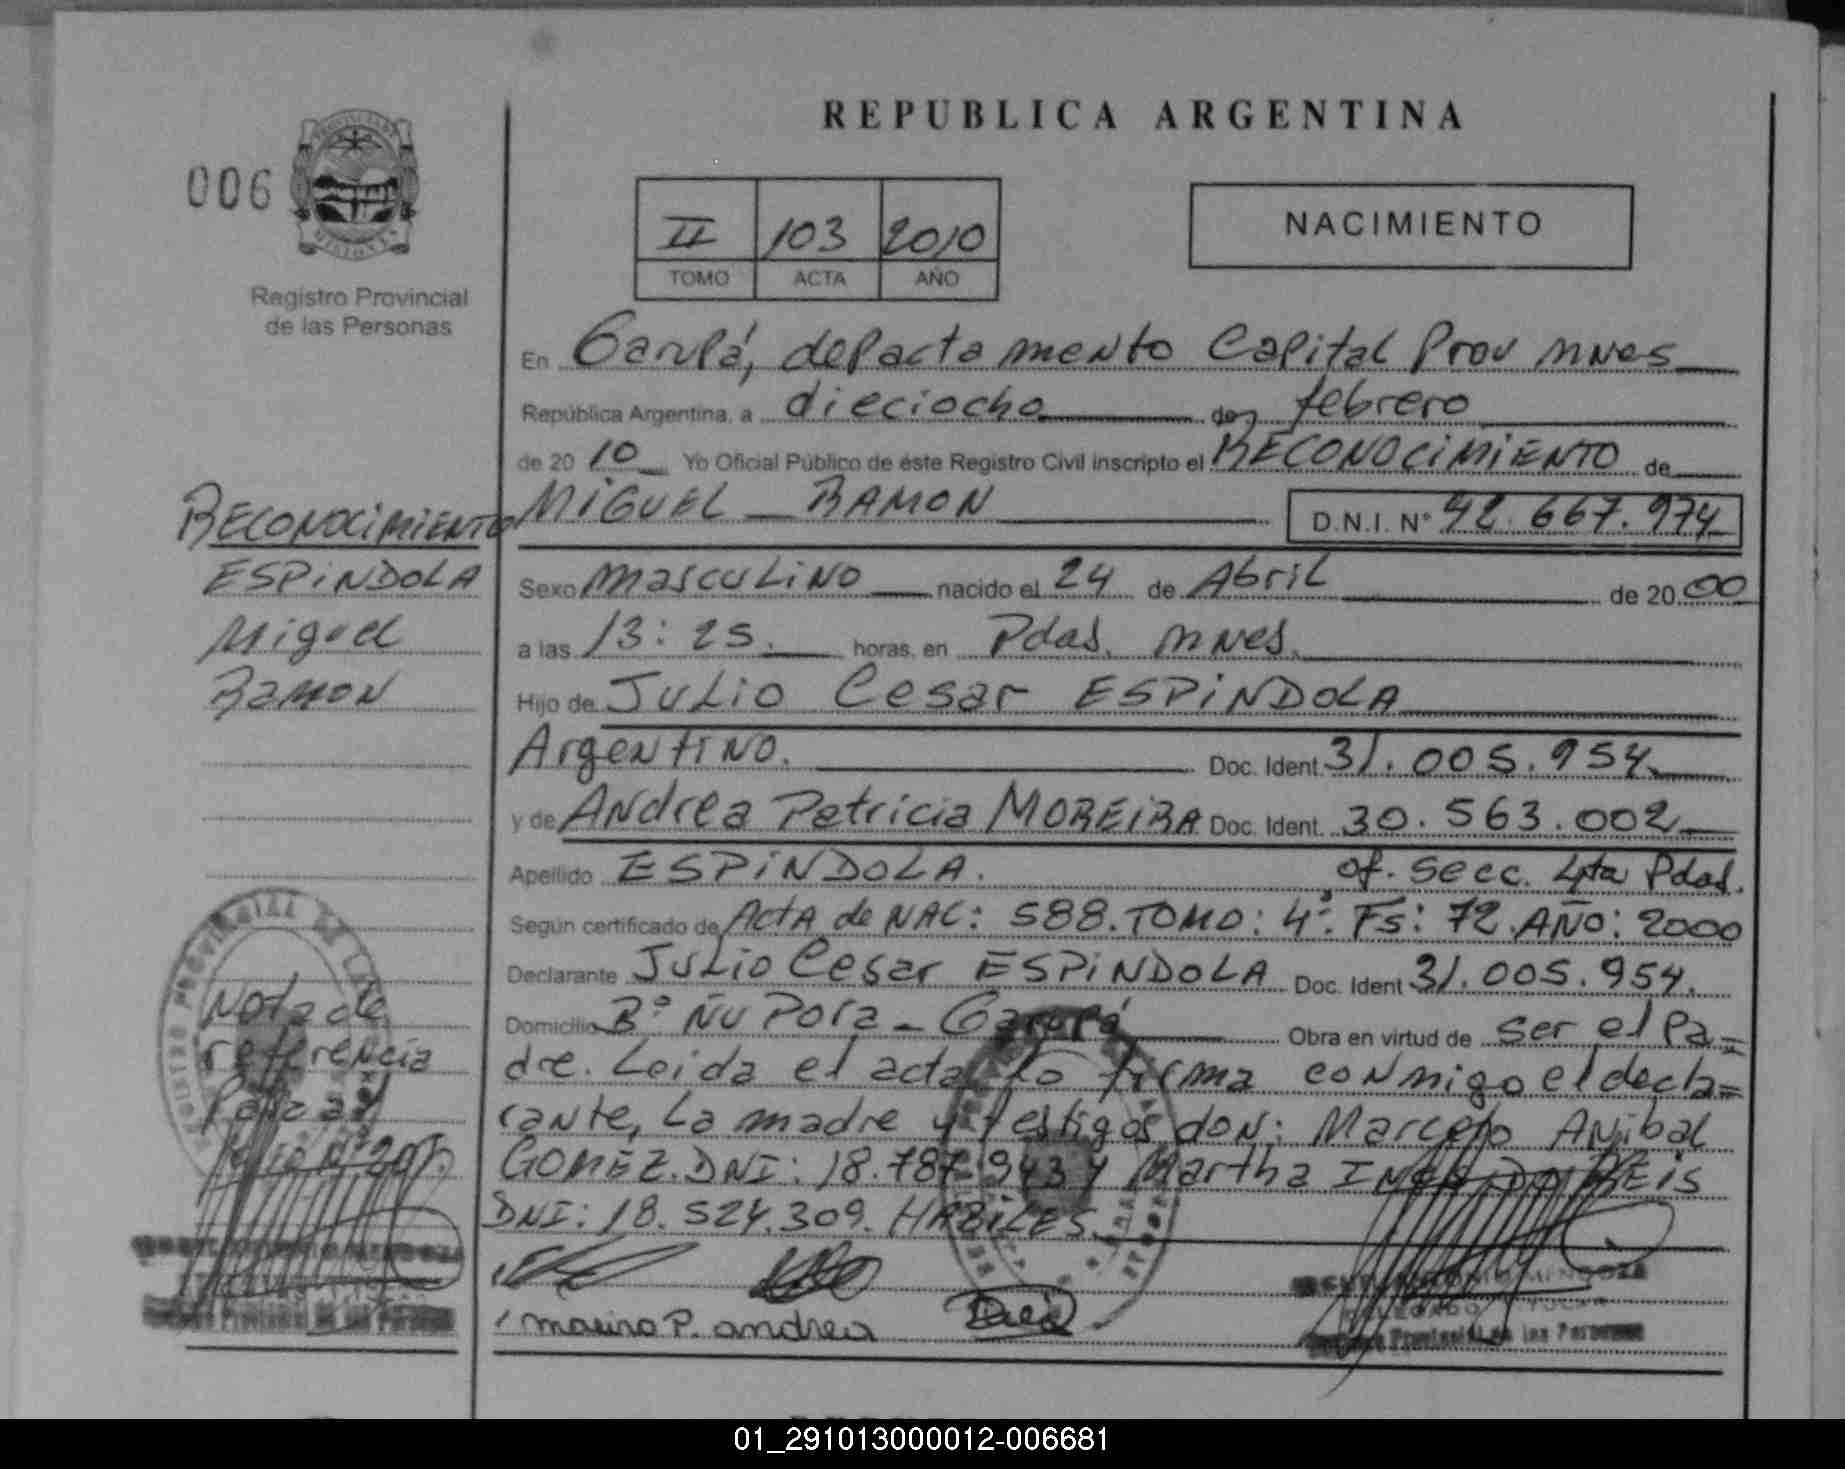 REPUBLICA ARGENTINA
006
PROVINCIA DE
MISIONES
Registro Provincial
de las Personas
II 103 2010
TOMO ACTA AÑO
NACIMIENTO
En Garupá, departamento Capital Prov mnes
República Argentina, a dieciocho de febrero
de 2010 Yo Oficial Público de éste Registro Civil inscripto el RECONOCIMIENTO de
MIGUEL RAMON D.N.I. N° 42.667.974
Sexo masculino nacido el 24 de Abril de 2000
a las 13:25. horas, en Pdas. mnes.
Hijo de Julio Cesar ESPINDOLA
Argentino. Doc. Ident. 31.005.954
y de Andrea Patricia MOREIRA Doc. Ident. 30.563.002
Apellido ESPINDOLA. of. secc. 4ta Pdas.
Según certificado de Acta de NAC: 588. TOMO: 4°. Fs: 72. AÑO: 2000
Declarante Julio Cesar ESPINDOLA Doc. Ident 31.005.954.
Domicilio B° Ñu Pora - Garupá Obra en virtud de ser el pa=
dre. Leida el acta lo firma conmigo el decla=
rante, La madre y testigos don: Marcelo Anibal
GOMEZ. DNI: 18.787.943 y Martha INES DO REIS
DNI: 18.524.309. HABILES.
moreira P. andrea
RECONOCIMIENTO
ESPINDOLA
Miguel
Ramon
Nota de
referencia
Provincial de las Personas
MENDOZA
Provincial de las Personas
01_291013000012-006681